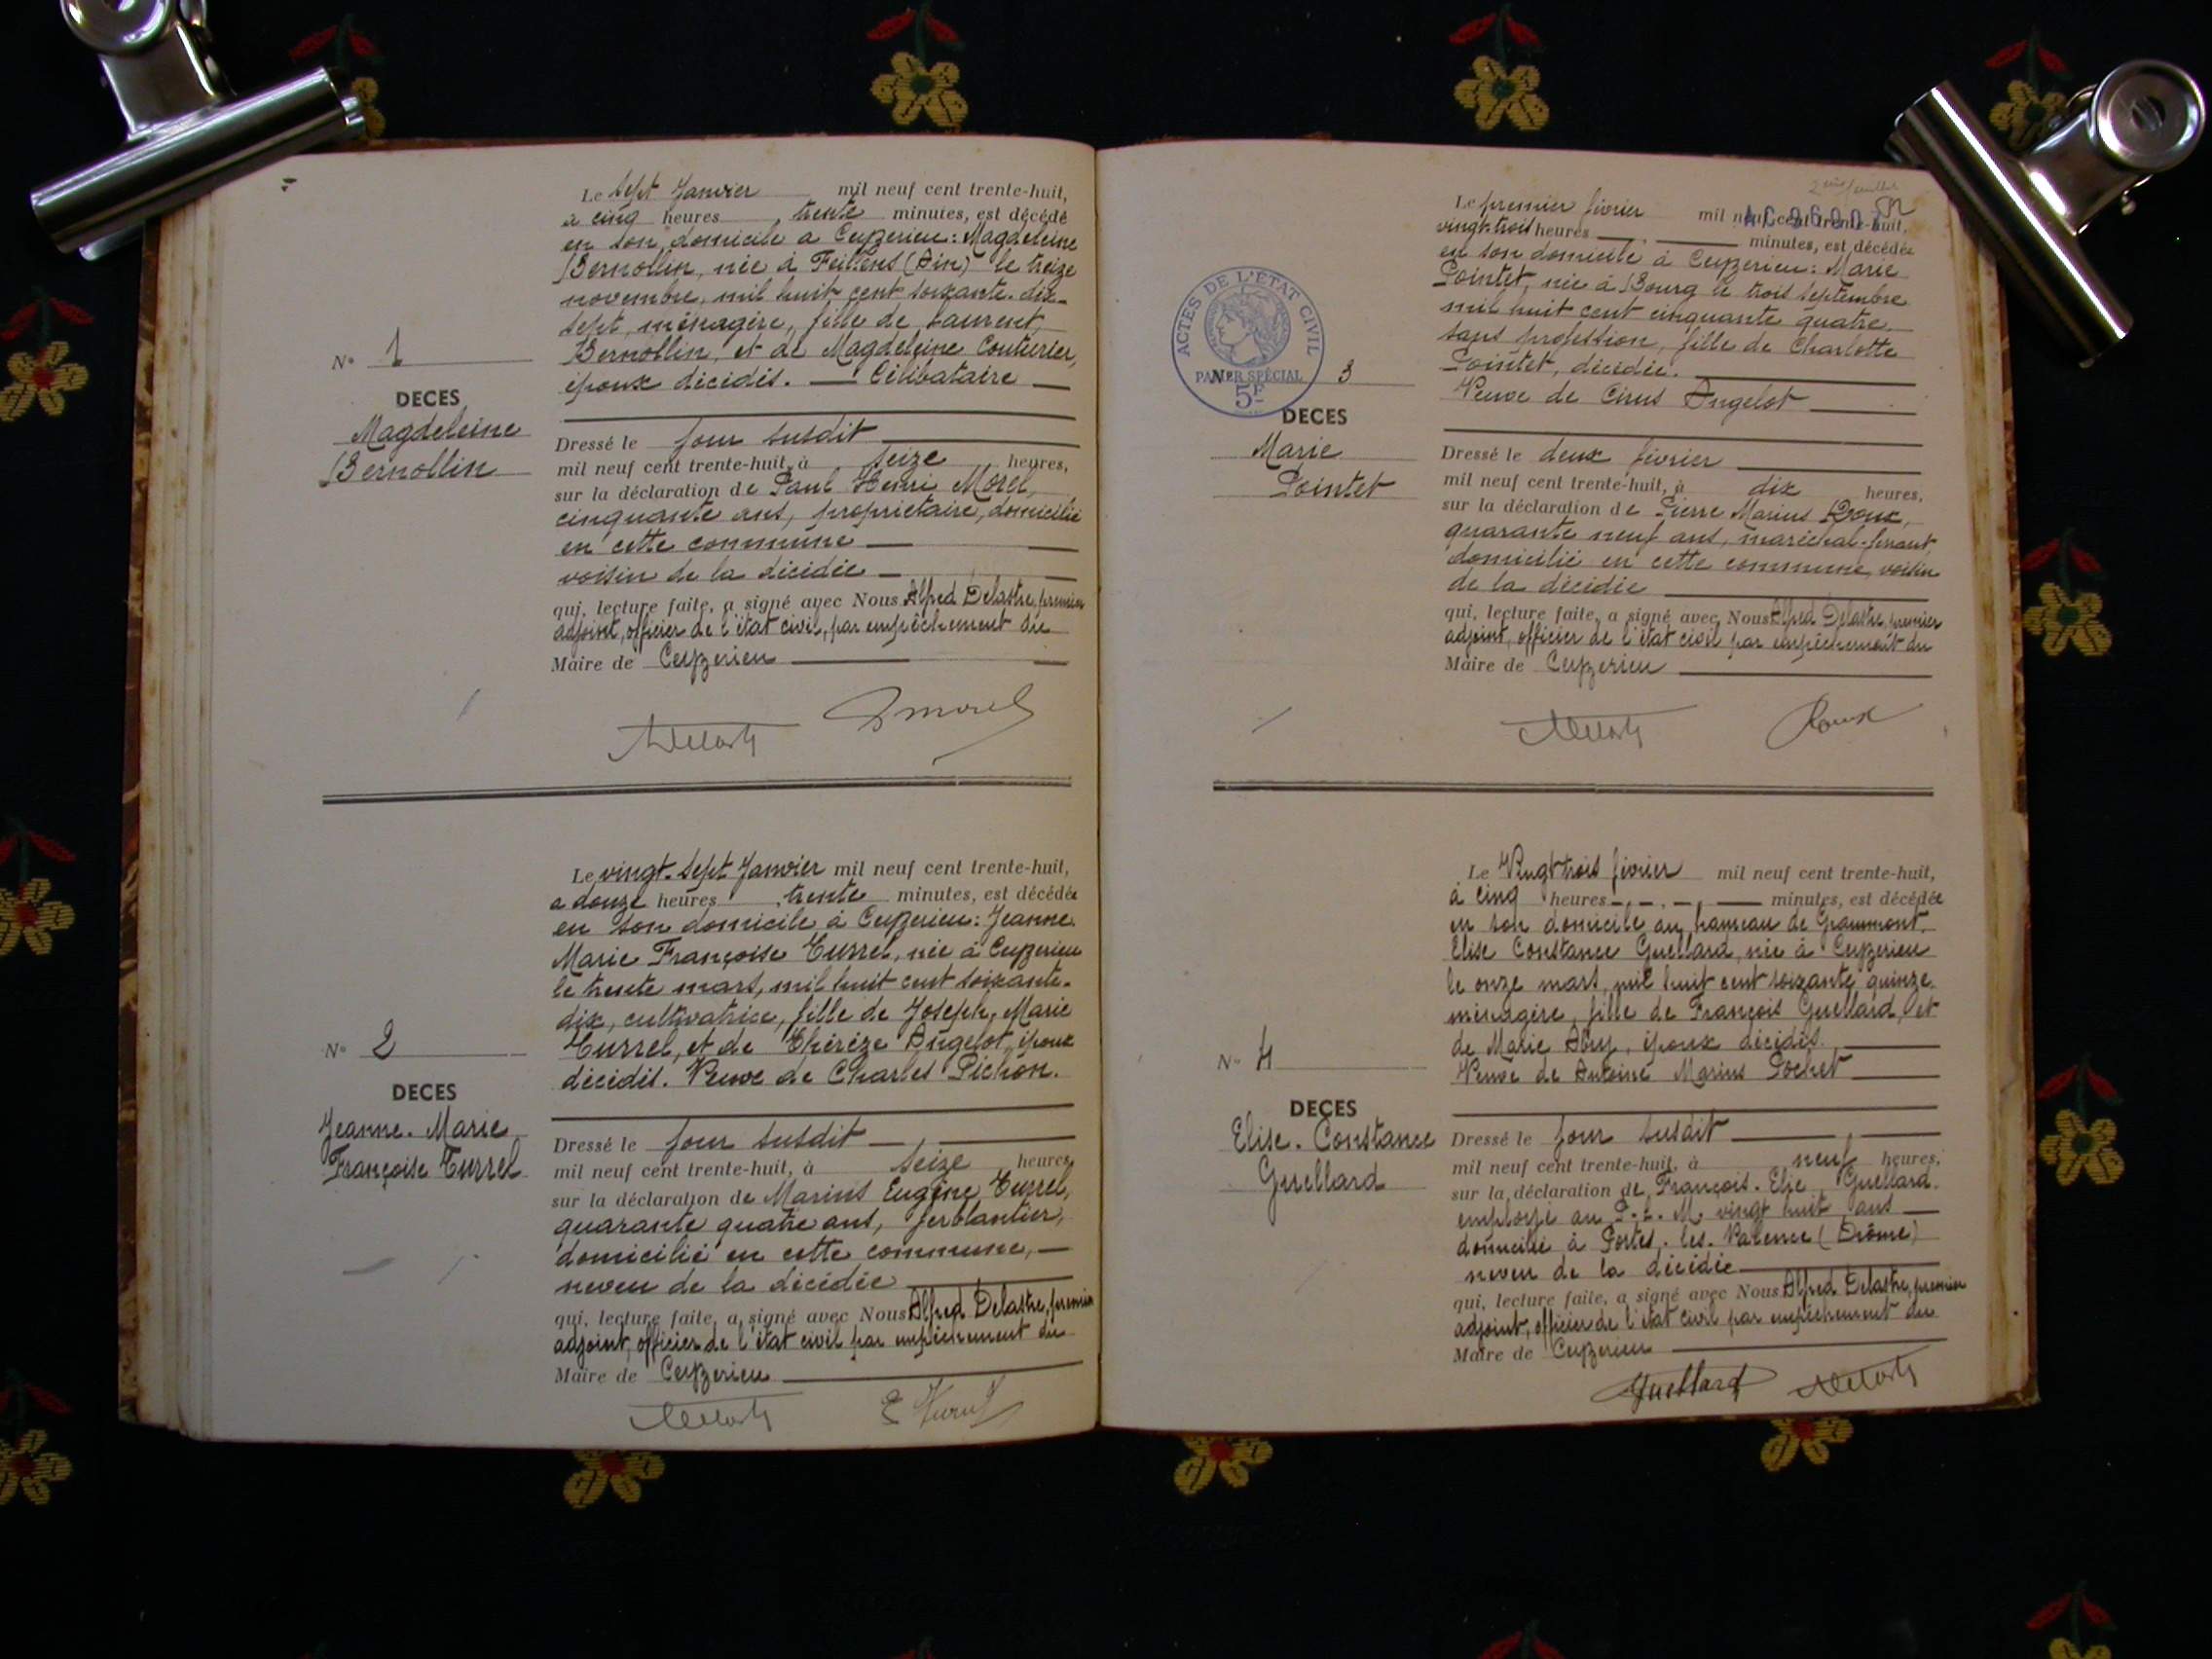 Le sept Janvier mil neuf cent trente-huit,
à cinq heures, trente minutes, est décédé
en son domicile à Ceyzerieu: Magdeleine
Bernollin, née à (Ain) le treize
novembre, mil huit cent soixante-dix-
sept, ménagère, fille de Laurent
Bernollin, et de Magdeleine Couturier,
époux décédés. — Célibataire —
N° 1
DECES
Magdeleine
Bernollin
Dressé le jour susdit
mil neuf cent trente-huit, à seize heures,
sur la déclaration de Paul Henri Morel,
cinquante ans, propriétaire, domicilié
en cette commune —
voisin de la décédée —
qui, lecture faite, a signé avec Nous Alfred Delastre, premier
adjoint, officier de l'état civil, par empêchement du
Maire de Ceyzerieu
Le vingt-sept Janvier mil neuf cent trente-huit,
a douze heures, trente minutes, est décédée
en son domicile à Ceyzerieu: Jeanne
Marie Françoise Turrel, née à Ceyzerieu
le trente mars, mil huit cent soixante-
dix, cultivatrice, fille de Joseph, Marie
Turrel, et de Thérèze Angelot, époux
décédés. Veuve de Charles Pichon.
N° 2
DECES
Jeanne-Marie
Françoise Turrel
Dressé le jour susdit —, —
mil neuf cent trente-huit, à seize heures,
sur la déclaration de Marius Eugène Turrel,
quarante quatre ans, ferblantier,
domicilié en cette commune, —
neveu de la décédée
qui, lecture faite, a signé avec Nous Alfred Delastre, premier
adjoint, officier de l'état civil par empêchement du
Maire de Ceyzerieu
Le premier février mil neuf cent trente-huit,
vingt-trois heures — . — minutes, est décédée
en son domicile à Ceyzerieu: Marie
Pointet, née à Bourg le trois septembre
mil huit cent cinquante quatre.
sans profession, fille de Charlotte
Pointet, décédée.
Veuve de Angelot
ACTES DE L'ÉTAT CIVIL
PAPIER SPÉCIAL
5F
N° 3
DECES
Marie
Pointet
Dressé le deux février
mil neuf cent trente-huit, à dix heures,
sur la déclaration de Pierre Marius Roux,
quarante neuf ans, maréchal-ferrant,
domicilié en cette commune, voisin
de la décédée
qui, lecture faite, a signé avec Nous Alfred Delastre, premier
adjoint, officier de l'état civil par empêchement du
Maire de Ceyzerieu
Roux
Le Vingt trois février mil neuf cent trente-huit,
à cinq heures — minutes, est décédée
en son domicile au hameau de Grammont.
Elise Constance Guellard, née à Ceyzerieu
le onze mars, mil huit cent soixante quinze.
ménagère, fille de François Guellard, et
de Marie Abry, époux décédés.
Veuve de Antoine Marius Pochet
N° 4
DECES
Elise-Constance
Guellard
Dressé le jour susdit —, —
mil neuf cent trente-huit, à neuf heures,
sur la déclaration de François-Elie Guellard.
employé au P.L.M. vingt huit ans —
domicilié à Portes-les-Valence (Drôme)
neveu de la décédée
qui, lecture faite, a signé avec Nous Alfred Delastre, premier
adjoint, officier de l'état civil par empêchement du
Maire de Ceyzerieu
Guellard